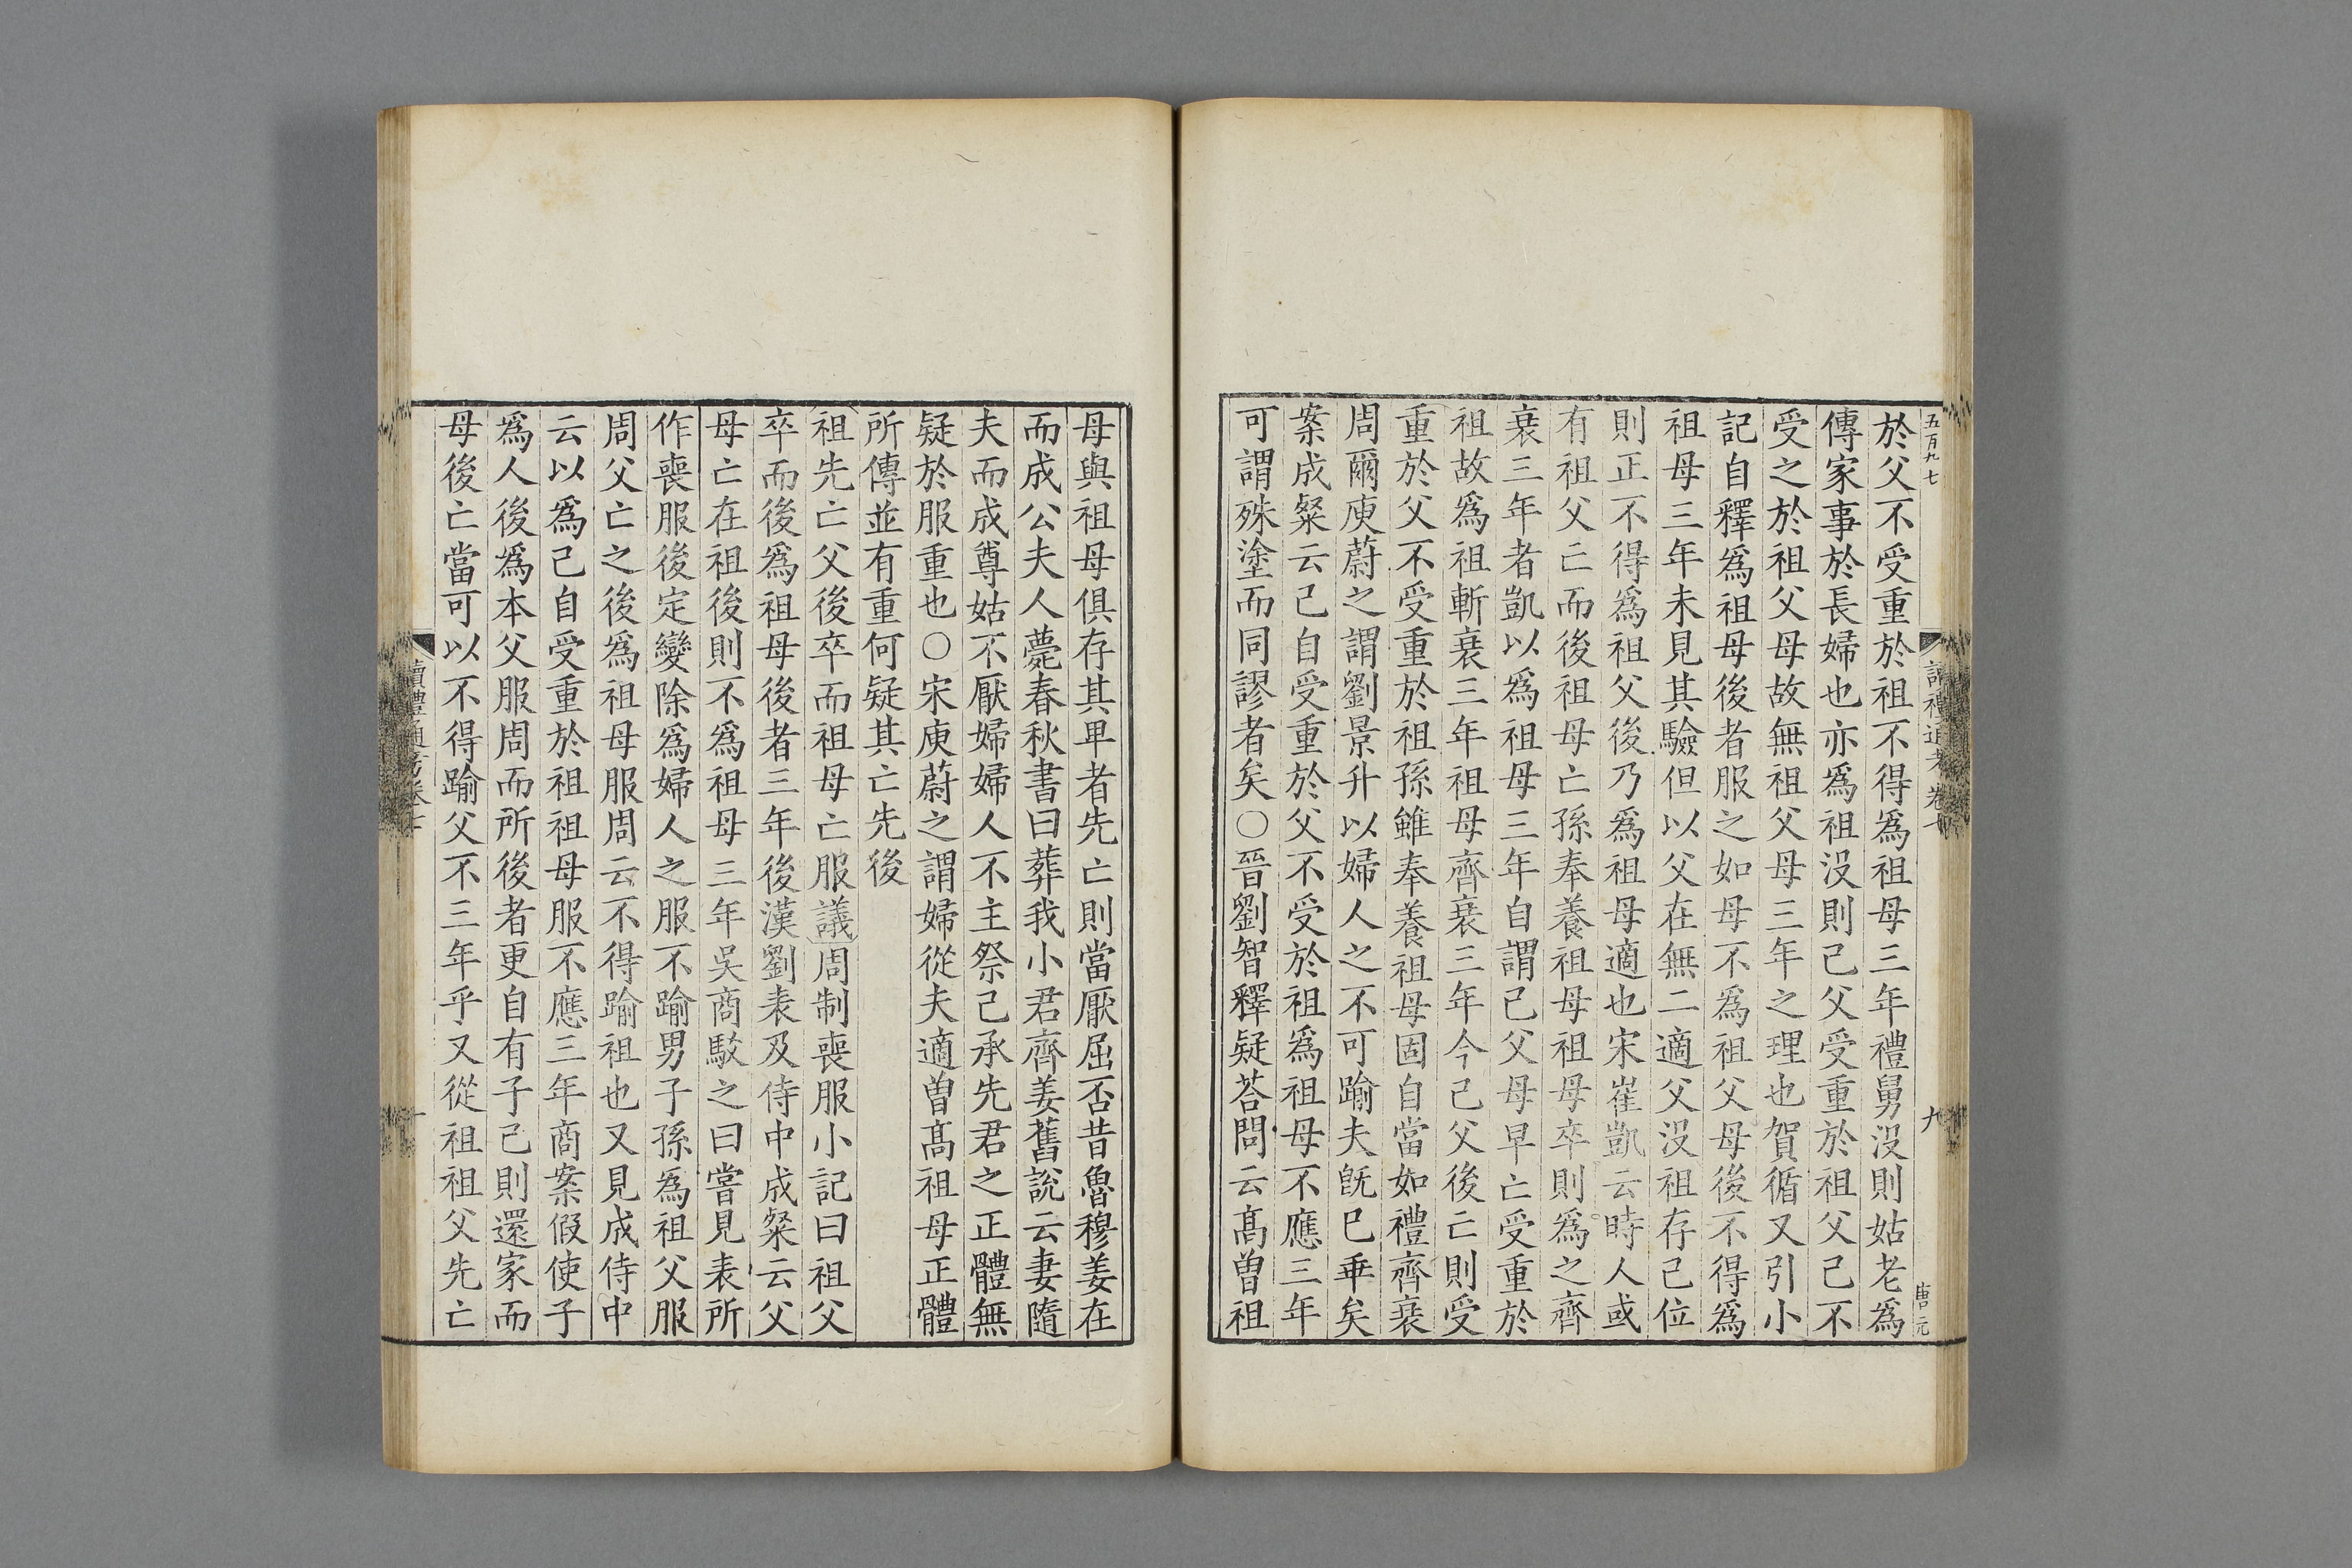 五百九七
讀禮通考卷七
九
唐元
於父不受重於祖不得爲祖母三年禮舅没則姑老爲
傳家事於長婦也亦爲祖没則己父受重於祖父己不
受之於祖父母故無祖父母三年之理也賀循又引小
記自釋爲祖母後者服之如母不爲祖父母後不得爲
祖母三年未見其驗但以父在無二適父没祖存己位
則正不得爲祖父後乃爲祖母適也宋崔凱云時人或
有祖父亡而後祖母亡孫奉養祖母祖母卒則爲之齊
衰三年者凱以爲祖母三年自謂己父母早亡受重於
祖故爲祖斬衰三年祖母齊衰三年今己父後亡則受
重於父不受重於祖孫雖奉養祖母固自當如禮齊衰
周爾庾蔚之謂劉景升以婦人之不可踰夫既已乖矣
案成粲云己自受重於父不受於祖爲祖母不應三年
可謂殊塗而同謬者矣〇晉劉智釋疑荅問云高曾祖
母與祖母俱存其卑者先亡則當厭屈否昔魯穆姜在
而成公夫人薨春秋書曰葬我小君齊姜舊說云妻隨
夫而成尊姑不厭婦婦人不主祭己承先君之正體無
疑於服重也〇宋庾蔚之謂婦從夫適曾髙祖母正體
所傳並有重何疑其亡先後
祖先亡父後卒而祖母亡服議周制喪服小記曰祖父
卒而後爲祖母後者三年後漢劉表及侍中成粲云父
母亡在祖後則不爲祖母三年吳商駁之曰嘗見表所
作喪服後定變除爲婦人之服不踰男子孫爲祖父服
周父亡之後爲祖母服周云不得踰祖也又見成侍中
云以爲己自受重於祖祖母服不應三年商案假使子
爲人後爲本父服周而所後者更自有子己則還家而
母後亡當可以不得踰父不三年乎又從祖祖父先亡
讀禮通考卷七